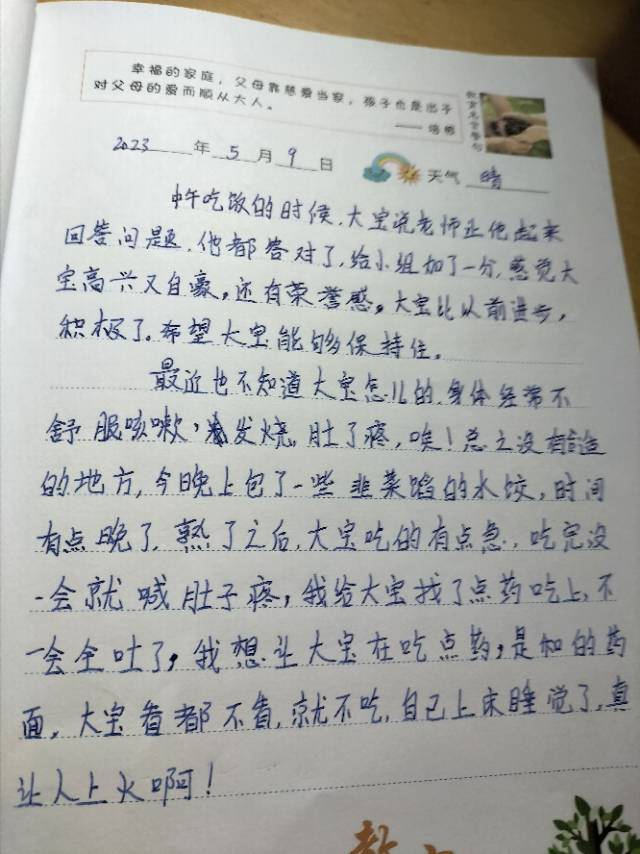 幸福的家庭，父母靠慈爱当家，孩子也是出于
对父母的爱而顺从大人。
—— 培根
教育名言警句
2023 年 5 月 9 日
天气 晴
中午吃饭的时候，大宝说老师让他起来
回答问题，他都答对了，给小组加了一分，感觉大
宝高兴又自豪，还有荣誉感。大宝比以前进步，
积极了。希望大宝能够保持住。
最近也不知道大宝怎儿的，身体经常不
舒服咳嗽，发烧，肚了疼，唉！总之没有
的地方，今晚上包了一些韭菜馅的水饺，时间
有点晚了，熟了之后，大宝吃的有点急，吃完没
一会就喊肚子疼，我给大宝找了点药吃上，不
一会全吐了，我想让大宝在吃点药，是和的药
面，大宝看都不看，就不吃，自己上床睡觉了，真
让人上火啊！